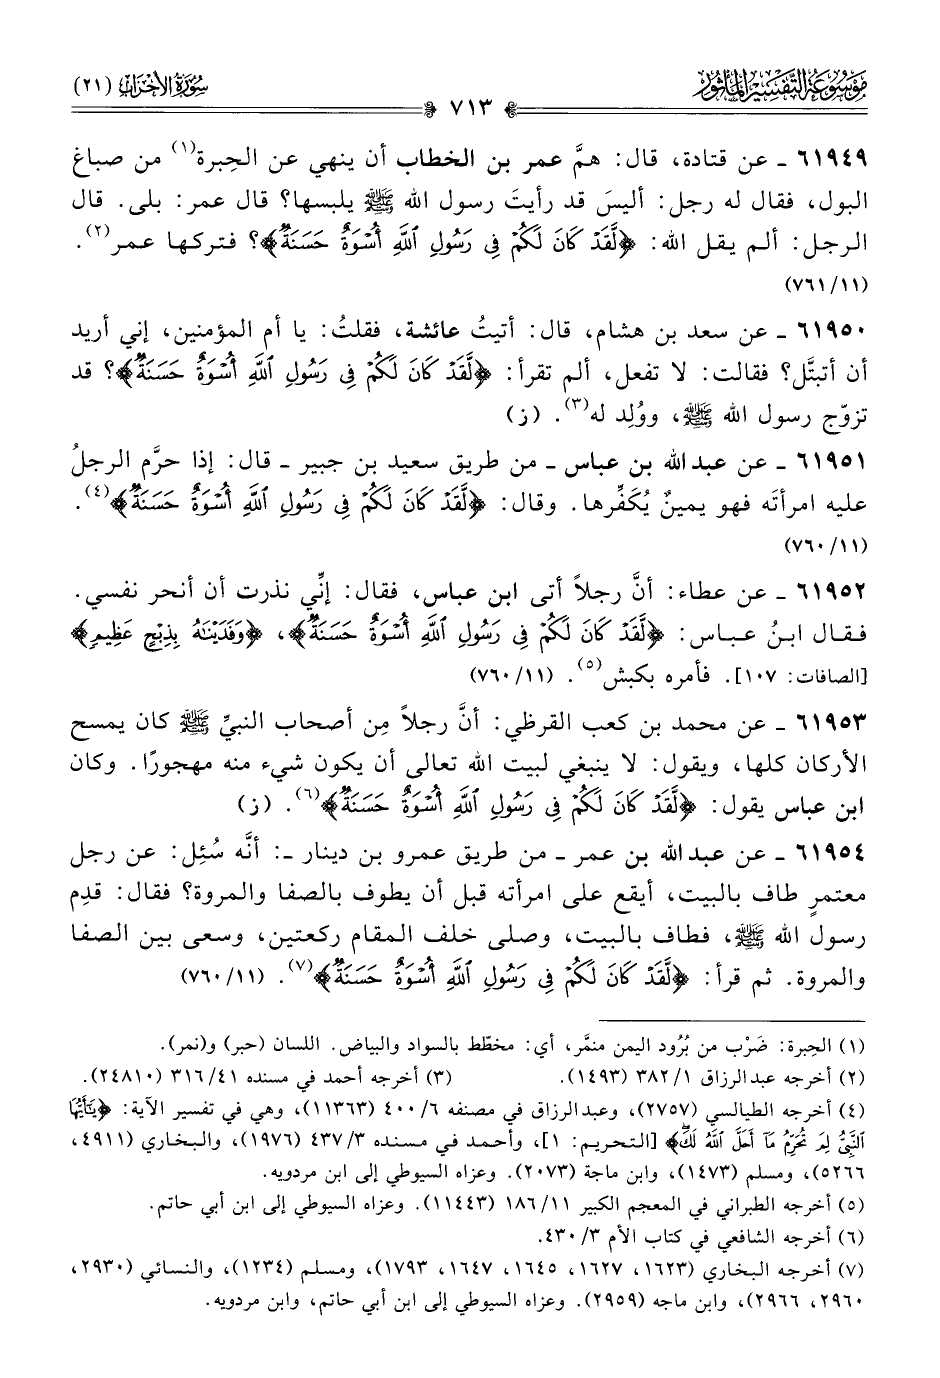 مَوْسُوعَة التَّفْسِيرِ المَأْثُور
سُورَةُ الأَحْزَاب (٢١)
٧١٣
٦١٩٤٩ ـ عن قتادة، قال: همَّ عمر بن الخطاب أن ينهي عن الحِبرة(١) من صباغ
البول، فقال له رجل: أليسَ قد رأيتَ رسول الله ﷺ يلبسها؟ قال عمر: بلى. قال
الرجل: ألم يقل الله: ﴿لَّقَدْ كَانَ لَكُمْ فِى رَسُولِ ٱللَّهِ أُسْوَةٌ حَسَنَةٌ﴾؟ فتركها عمر(٢).
(١١/ ٧٦١)
٦١٩٥٠ ـ عن سعد بن هشام، قال: أتيتُ عائشة، فقلتُ: يا أم المؤمنين، إني أريد
أن أتبتَّل؟ فقالت: لا تفعل، ألم تقرأ: ﴿لَّقَدْ كَانَ لَكُمْ فِى رَسُولِ ٱللَّهِ أُسْوَةٌ حَسَنَةٌ﴾؟ قد
تزوّج رسول الله ﷺ، ووُلِد له(٣). (ز)
٦١٩٥١ ـ عن عبدالله بن عباس ـ من طريق سعيد بن جبير ـ قال: إذا حرَّم الرجلُ
عليه امرأتَه فهو يمينٌ يُكَفِّرها. وقال: ﴿لَّقَدْ كَانَ لَكُمْ فِى رَسُولِ ٱللَّهِ أُسْوَةٌ حَسَنَةٌ﴾(٤).
(١١/ ٧٦٠)
٦١٩٥٢ ـ عن عطاء: أنَّ رجلاً أتى ابن عباس، فقال: إنِّي نذرت أن أنحر نفسي.
فقال ابنُ عباس: ﴿لَّقَدْ كَانَ لَكُمْ فِى رَسُولِ ٱللَّهِ أُسْوَةٌ حَسَنَةٌ﴾، ﴿وَفَدَيْنَٰهُ بِذِبْحٍ عَظِيمٍ﴾
[الصافات: ١٠٧]. فأمره بكبش(٥). (١١/ ٧٦٠)
٦١٩٥٣ ـ عن محمد بن كعب القرظي: أنَّ رجلاً مِن أصحاب النبيِّ ﷺ كان يمسح
الأركان كلها، ويقول: لا ينبغي لبيت الله تعالى أن يكون شيء منه مهجورًا. وكان
ابن عباس يقول: ﴿لَّقَدْ كَانَ لَكُمْ فِى رَسُولِ ٱللَّهِ أُسْوَةٌ حَسَنَةٌ﴾(٦). (ز)
٦١٩٥٤ ـ عن عبدالله بن عمر ـ من طريق عمرو بن دينار ـ: أنَّه سُئِل: عن رجل
معتمرٍ طاف بالبيت، أيقع على امرأته قبل أن يطوف بالصفا والمروة؟ فقال: قدِم
رسول الله ﷺ، فطاف بالبيت، وصلى خلف المقام ركعتين، وسعى بين الصفا
والمروة. ثم قرأ: ﴿لَّقَدْ كَانَ لَكُمْ فِى رَسُولِ ٱللَّهِ أُسْوَةٌ حَسَنَةٌ﴾(٧). (١١/ ٧٦٠)
(١) الحِبرة: ضَرْب من بُرُود اليمن منمَّر، أي: مخطَّط بالسواد والبياض. اللسان (حبر) و(نمر).
(٢) أخرجه عبدالرزاق ١/ ٣٨٢ (١٤٩٣). (٣) أخرجه أحمد في مسنده ٤١/ ٣١٦ (٢٤٨١٠).
(٤) أخرجه الطيالسي (٢٧٥٧)، وعبدالرزاق في مصنفه ٦/ ٤٠٠ (١١٣٦٣)، وهي في تفسير الآية: ﴿يَٰٓأَيُّهَا
ٱلنَّبِىُّ لِمَ تُحَرِّمُ مَآ أَحَلَّ ٱللَّهُ لَكَ﴾ [التحريم: ١]، وأحمد في مسنده ٣/ ٤٣٧ (١٩٧٦)، والبخاري (٤٩١١،
٥٢٦٦)، ومسلم (١٤٧٣)، وابن ماجة (٢٠٧٣). وعزاه السيوطي إلى ابن مردويه.
(٥) أخرجه الطبراني في المعجم الكبير ١١/ ١٨٦ (١١٤٤٣). وعزاه السيوطي إلى ابن أبي حاتم.
(٦) أخرجه الشافعي في كتاب الأم ٣/ ٤٣٠.
(٧) أخرجه البخاري (١٦٢٣، ١٦٢٧، ١٦٤٥، ١٦٤٧، ١٧٩٣)، ومسلم (١٢٣٤)، والنسائي (٢٩٣٠،
٢٩٦٠، ٢٩٦٦)، وابن ماجه (٢٩٥٩). وعزاه السيوطي إلى ابن أبي حاتم، وابن مردويه.